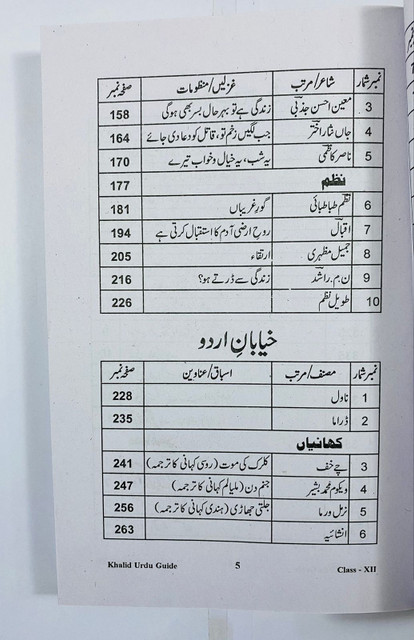 نمبر شمار شاعر/مرتب غزلیں/منظومات صفحہ نمبر
3 معین احسن جذبی زندگی ہے تو بہر حال بسر بھی ہوگی 158
4 جاں نثار اختر جب لگیں زخم تو، قاتل کو دعا دی جائے 164
5 ناصر کاظمی یہ شب، یہ خیال و خواب تیرے 170
نظم 177
6 نظم طباطبائی گورِ غریباں 181
7 اقبال روحِ ارضی آدم کا استقبال کرتی ہے 194
8 جمیل مظہری ارتقاء 205
9 ن.م.راشد زندگی سے ڈرتے ہو؟ 216
10 طویل نظم 226
خیابانِ اردو
نمبر شمار مصنف/مرتب اسباق/عناوین صفحہ نمبر
1 ناول 228
2 ڈراما 235
کہانیاں
3 چے خف کلرک کی موت (روسی کہانی کا ترجمہ) 241
4 ویکوم محمد بشیر جنم دن (ملیالم کہانی کا ترجمہ) 247
5 نرمل ورما جلتی جھاڑی (ہندی کہانی کا ترجمہ) 256
6 انشائیہ 263
Khalid Urdu Guide 5 Class - XII